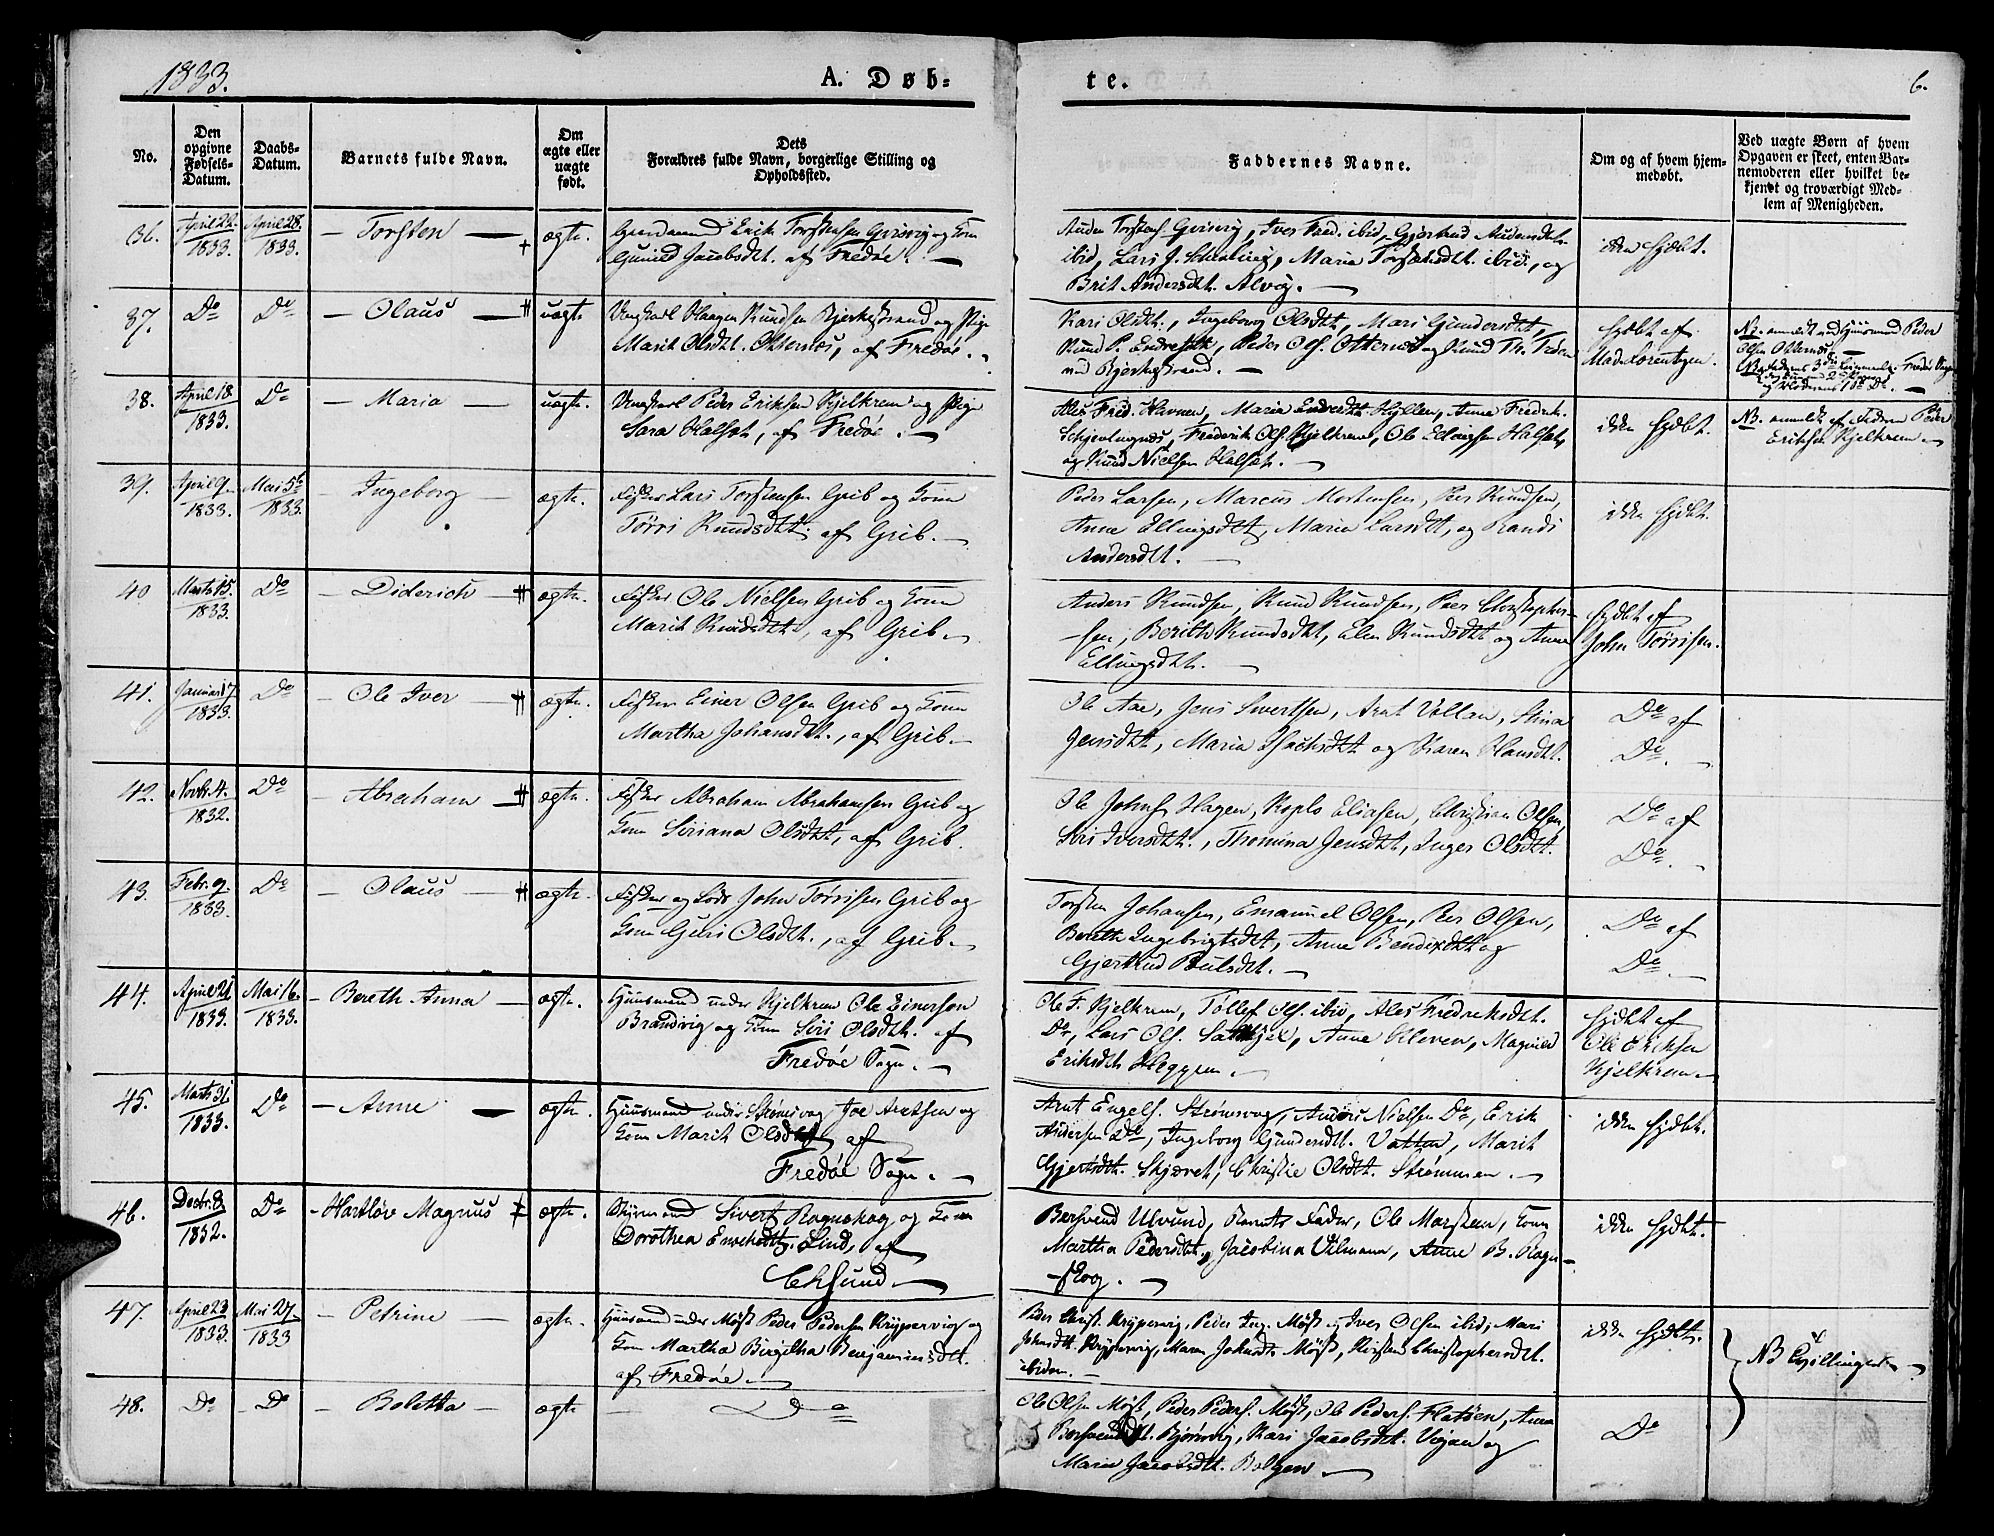 1833.
A. Døb=
te.
6.
No.
Den opgivne Fødsels-Datum.
Daabs-Datum.
Barnets fulde Navn.
Om ægte eller uægte født.
Dets Forældres fulde Navn, borgerlige Stilling og Opholdssted.
Faddernes Navne.
Om og af hvem hjemmedøbt.
Ved uægte Børn af hvem
Opgaven er skeet, enten Bar-
nemoderen eller hvilket be-
kjendt og troværdigt Med-
lem af Menigheden.
36. April 22. 1833. April 28. 1833. – Torsten – ægte.
Erik Torstensen og Kone
Gunild Jacobsdt. af Fredøe. –
Iver Fred. ibid,
ibid, Lars J. Maria Torstensdt. ibid., og
Brit Andersdt. Alvig. –
ikke hjdbt.
37. Do Do – Olaus – uægte
Ungkarl Haagen Knudsen Bjerkestrand og Pige
Marit Olsdt. Otternæs, af Fredøe. –
Kari Olsdt., Ingeborg Olsdtt, Mari Gundersdtt,
Knud P. Peder Ols. Otternæs og Knud Th.
Bjerkestrand. –
hjdbt af
Mad. Lorentzen.
NB. anmeldt ved Huusmand Peder
Olsen Otternæs. –
38. April 18. 1833. Do – Maria – uægte.
Ungkarl Peder Eriksen Kjelkrem og Pige
Sara Halset, af Fredøe. –
Ales Fred. Havnen, Maria Hyllen, Anne Fredrik.
Frederik Ols. Kjelkrem, Ole Ellingsen Halset,
og Knud Nielsen Halset. –
ikke hjdbt.
NB. anmeldt af Faderen Peder
Eriksen Kjelkrem. –
39. April 9. 1833. Mai 5te 1833. – Ingeborg – ægte.
Fisker Lars Torstensen Grib og Kone
Tørri Knudsdtt. af Grib. –
Peder Larsen, Marcus Mortensen, Peer Knudsen,
Anne Ellingsdtt, Maria Larsdtt, og Randi
Andersdtt. –
ikke hjdbt.
40 Marts 15. 1833. Do – Diderich – ægte.
Fisker Ole Nielsen Grib og Kone
Marit Knudsdtt., af Grib. –
Anders Knudsen, Knud Knudsen, Peer Christopher-
sen, Berith Knudsdtt, Elen Knudsdtt og Anne
Ellingsdtt. –
hjdbt af
John Tørrisen.
41. Januar 17. 1833. Do – Ole Iver – ægte.
Fisker Einer Olsen Grib og Kone
Martha Johansdtt., af Grib. –
Ole Aae, Jens Sivertsen, Arnt Vollan, Stina
Jensdtt, Maria Isachsdtt og Karen Hansdtt.
Do af
Do.
42. Novbr. 4. 1832. Do – Abraham – ægte.
Fisker Abraham Abrahamsen Grib og
Kone Siriana Olsdtt, af Grib.
Ole Johns. Hagen, Eliasen, Christian Olsen,
Siri Iversdtt., Thomina Jensdtt, Inger Olsdtt.
Do af
Do.
43. Febr. 9. 1833. Do – Olaus – ægte.
Fisker og Lods John Tørrisen Grib og
Kone Guri Olsdt., af Grib. –
Torsten Johansen, Emanuel Olsen, Peer Olsen,
Berith Ingebrigtsdtt, Anne Bendixdtt og
Gjertrud Paulsdtt. –
Do af
Do.
44. April 21 1833. Mai 16. 1833. – Bereth Anna – ægte.
Huusmand under Kjelkrem Ole Einersen
Brandvig og Kone Siri Olsdtt. af
Fredøe Sogn. –
Ole F. Kjelkrem, Tøllef Ols. ibid, Ales Fredriksdt.
Do, Lars Ols. Anne Kleven, Magnild
Eriksdtt Heggem. –
hjdbt af
Ole Eriksen
Kjelkrem. –
45. Marts 31 1833. Do – Anne – ægte.
Huusmand under Strømsvag Joe Arntsen og
Kone Marit Olsdtt af
Fredøe Sogn. –
Arnt Engels. Strømsvag, Anders Nielsen Do, Erik
Andersen Do, Ingeborg Gundersdt. Vatten, Marit
Gjertsdt. Skjævet, Christie Olsdt. Strømmen. –
ikke hjdbt.
46. Decbr. 8 1832. Do – Hartløv Magnus ægte.
Sivert Rognskog og Kone
Dorothea Lind, af
Chsund –
Bersvend Ulvund, Barnets Fader, Ole Marstein, Kone
Martha Pedersdt., Jacobina Vilmann, Anne B. Rogn-
skog. –
ikke hjdbt.
47. April 23 1833. Mai 27 1833 – Petrine – ægte.
Huusmand under Møst Peder Pedersen Krypervig og
Kone Martha Birgitha Benjaminsdt.
af Fredøe. –
Peder Christ. Krypervig, Peder Ing. Møst, Iver Olsen ibid, Mari
Johnsdt. Krypervig, Maren Johnsdt. Møst, Kirsten Christophersdt.
ibidem. –
ikke hjdbt.
NB Tvillinger. –
48. Do – Do – Boletta – ægte – Do
Ole Olsen Møst, Peder Peders. Møst, Ole Peders. Flatsen, Anne
Bjørnvig, Kari Jacobsdt. Vejan og
Maria Jacobsdt. Bolgen –
Do